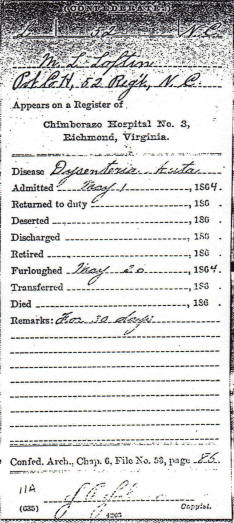 (CONFEDERATE.)
L 52 N.C.
M. L. Loftin
Pvt Co. H, 52 Reg't, N. C.
Appears on a Register of
Chimborazo Hospital No. 3,
Richmond, Virginia.
Disease Dysenteria Acuta
Admitted May 1, 1864.
Returned to duty, 186 .
Deserted, 186 .
Discharged, 186 .
Retired, 186 .
Furloughed May 20, 1864.
Transferred, 186 .
Died, 186 .
Remarks: For 30 days
Confed. Arch., Chap. 6, File No. 58, page 86
11A
(635) 4263 Copyist.